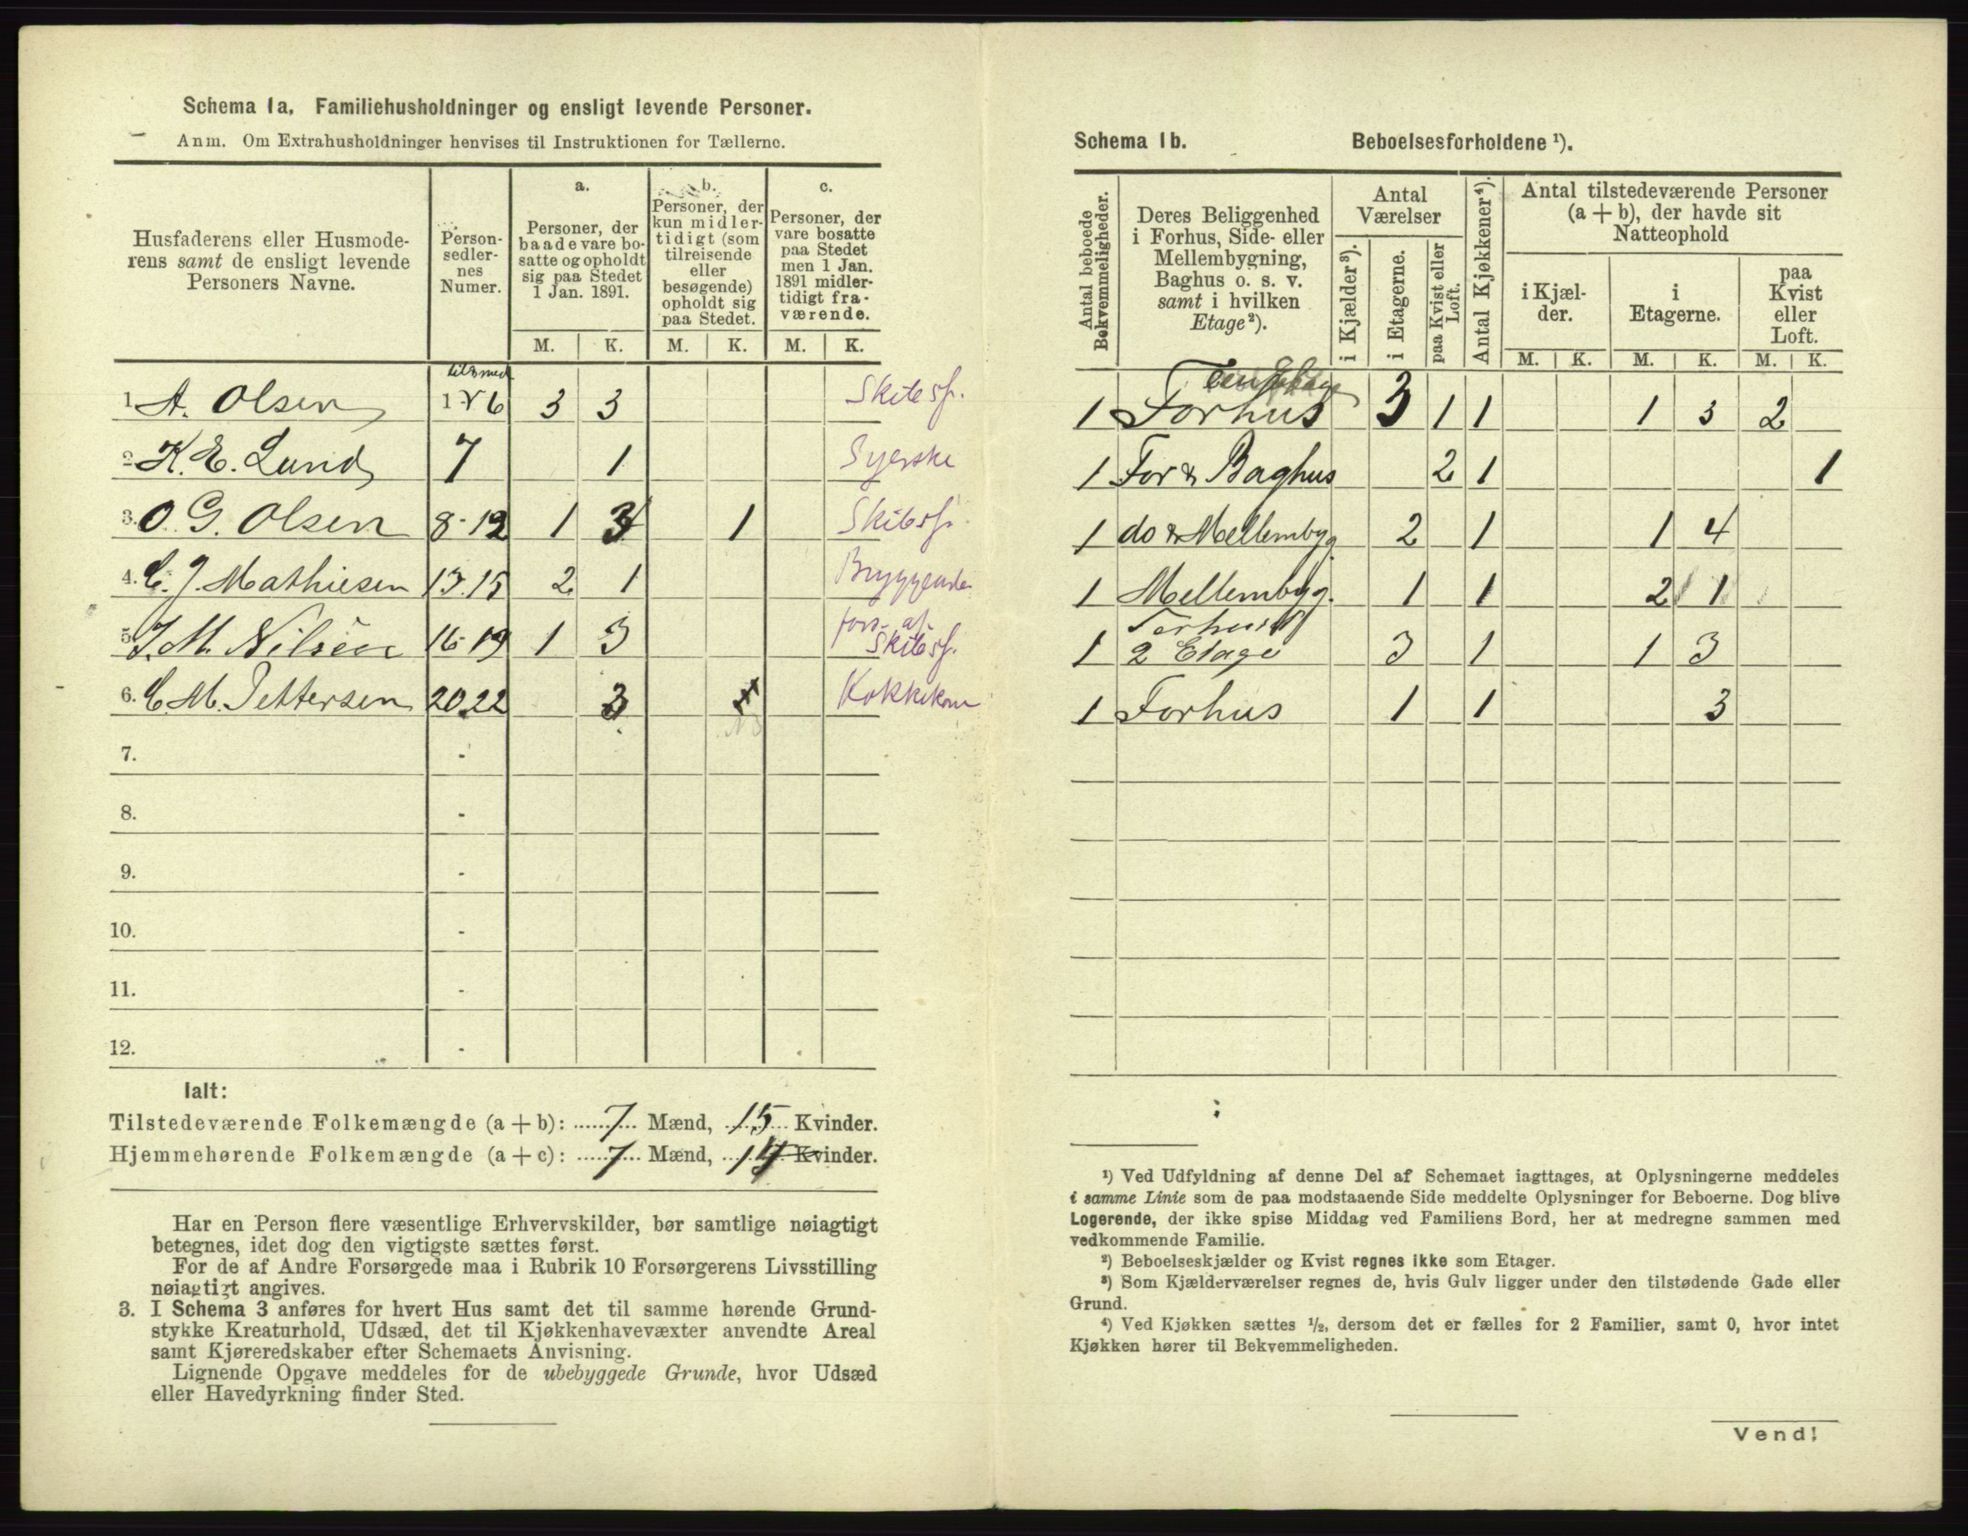 Schema 1a. Familiehusholdninger og ensligt levende Personer.
Anm. Om Extrahusholdninger henvises til Instruktionen for Tællerne.
Husfaderens eller Husmode-
rens samt de ensligt levende
Personers Navne.
Person-
sedler-
nes
Numer.
a.
Personer, der
baade vare bo-
satte og opholdt
sig paa Stedet
1 Jan. 1891.
b.
Personer, der
kun midler-
tidigt (som
tilreisende
eller
besøgende)
opholdt sig
paa Stedet.
c.
Personer, der
vare bosatte
paa Stedet
men 1 Jan.
1891 midler-
tidigt fra-
værende.
M. K. M. K. M. K.
til & med
1. A. Olsen 1 6 3 3 Skibsf.
2. K. E. Lund 7 1 Syerske
3. O. G. Olsen 8-12 1 3 1 Skibsf.
4. C. J. Mathiesen 13-15 2 1
5. J. M. Nilsen 16-19 1 3 fors. af Skibsf.
6. C. M. Pettersen 20-22 3 Kokkekone
7. -
8. -
9. -
10. -
11. -
12. -
Ialt:
Tilstedeværende Folkemængde (a + b): 7 Mænd, 15 Kvinder.
Hjemmehørende Folkemængde (a + c): 7 Mænd, 14 Kvinder.
Har en Person flere væsentlige Erhvervskilder, bør samtlige nøiagtigt
betegnes, idet dog den vigtigste sættes først.
For de af Andre Forsørgede maa i Rubrik 10 Forsørgerens Livsstilling
nøiagtigt angives.
3. I Schema 3 anføres for hvert Hus samt det til samme hørende Grund-
stykke Kreaturhold, Udsæd, det til Kjøkkenhavevæxter anvendte Areal
samt Kjøreredskaber efter Schemaets Anvisning.
Lignende Opgave meddeles for de ubebyggede Grunde, hvor Udsæd
eller Havedyrkning finder Sted.
Schema 1b. Beboelsesforholdene ¹).
Antal beboede
Bekvemmeligheder.
Deres Beliggenhed
i Forhus, Side- eller
Mellembygning,
Baghus o. s. v.
samt i hvilken
Etage²).
Antal
Værelser
i Kjælder³).
i Etagerne.
paa Kvist eller
Loft.
Antal Kjøkkener⁴).
Antal tilstedeværende Personer
(a + b), der havde sit
Natteophold
i Kjæl-
der.
i
Etagerne.
paa
Kvist
eller
Loft.
M. K. M. K. M. K.
1 Forhus 3 1 1 1 3 2
1 For & Baghus 2 1 1
1 do & Mellembyg. 2 1 1 4
1 Mellembyg. 1 1 2 1
Forhuset
1 2 Etage 3 1 1 3
1 Forhus 1 1 3
¹) Ved Udfyldning af denne Del af Schemaet iagttages, at Oplysningerne meddeles
i samme Linie som de paa modstaaende Side meddelte Oplysninger for Beboerne. Dog blive
Logerende, der ikke spise Middag ved Familiens Bord, her at medregne sammen med
vedkommende Familie.
²) Beboelseskjælder og Kvist regnes ikke som Etager.
³) Som Kjælderværelser regnes de, hvis Gulv ligger under den tilstødende Gade eller
Grund.
⁴) Ved Kjøkken sættes ½, dersom det er fælles for 2 Familier, samt 0, hvor intet
Kjøkken hører til Bekvemmeligheden.
Vend!